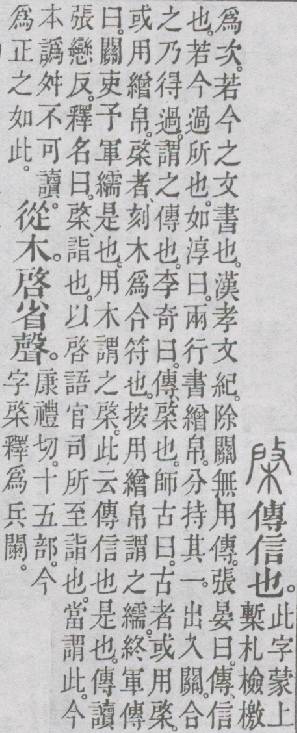 棨傳信也。此字蒙上
槧札檢檄
爲次。若今之文書也。漢孝文紀。除關無用傳。張晏曰。傳信
也。若今過所也。如淳曰。兩行書繒帛。分持其一。出入關。合
之乃得過。謂之傳也。李奇曰。傳棨也。師古曰。古者或用棨。
或用繒帛。棨者、刻木爲合符也。按用繒帛謂之繻。終軍傳
曰。關吏予軍繻是也。用木謂之棨。此云傳信也是也。傳讀
張戀反。釋名曰。棨詣也。以啓語官司所至詣也。當謂此。今
本譌舛不可讀。
爲正之如此。
從木。啓省聲。康禮切。十五部。今
字棨釋爲兵闌。